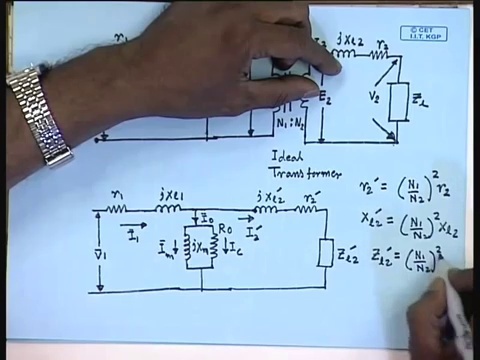 © CET
I.I.T. KGP
r1
jxl2 r2
E2
V2
Z̄L
N1:N2
Ideal
Transformer
r1 jxl1 jxl2' r2'
Ī0
V̄1
Ī1
I2'
R0
Īm' jXm Ic
Z̄l2'
r2' = (N1/N2)² r2
xl2' = (N1/N2)² xl2
Z̄l2' = (N1/N2)²